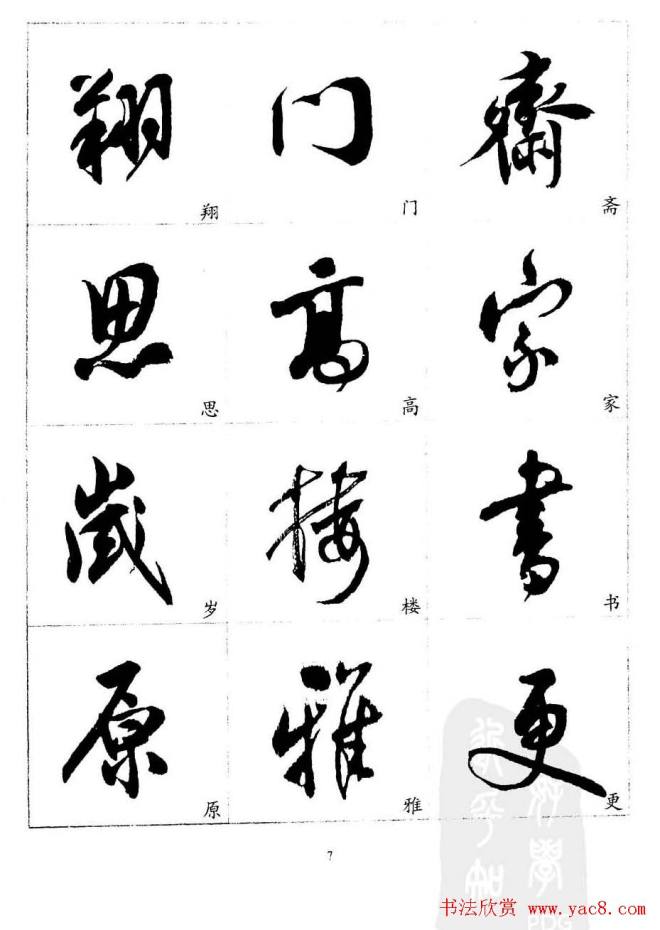 齋 斋
家 家
書 书
更 更
门 门
高 高
楼 楼
雅 雅
翔 翔
思 思
歲 岁
原 原
7
书法欣赏 www.yac8.com